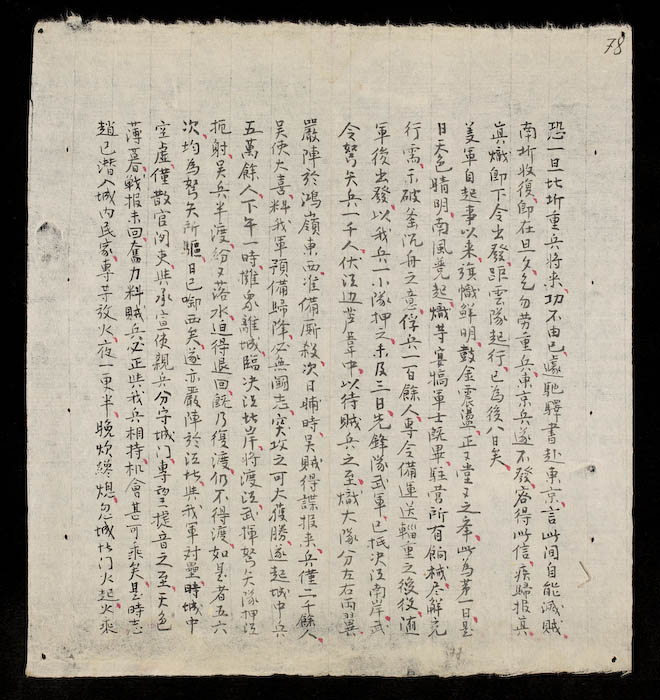 78
恐一旦北圻重兵將来功不由已處馳驛書赴東京言此间自能滅賊
南圻收復即在旦夕乞勿劳重兵東京兵遂不發容得此信疾歸报真
真熾即下令出發距雲隊起行已為後八日矣
美軍自起事以来旗幟鮮明鼓金震盪正々堂々之拳此為苐一日是
日天色晴明南風競起熾等宴犒軍士既畢駐营所有餉械尽觧充
行需示破釜沉舟之意俘兵一百餘人專令備運送輜重之後役随
軍後出發以我兵一小隊押之未及三日先鋒隊武軍已抵决江南岸武
令弩矢兵一千人伏江边芦葦中以待賊兵之至熾大隊分左右両翼
嚴陣於鴻嶺東西准備厮殺次日晡時吴賊得諜报来兵僅二千餘人
吴使大喜料我軍預備歸降必無闘志突攻之可大獲勝遂起城中兵
五萬餘人下午一時雊象離城臨决江北岸将渡江武揮弩矢隊押江
扼射吴兵半渡紛々落水迫得退回既乃復渡仍不得渡如是者五六
次均為弩矢所驅日已啣西矣遂亦嚴陣於江北與我軍对壘時城中
空虚僅散官闲吏與承宣使親兵分守城门專望捷音之至天色
薄暮战报未回奮力料賊兵必正與我兵相持机會甚可乘矣是時志
趙已潜入城内民家專等放火夜一更半晚炊纔熄忽城北门火起火乘